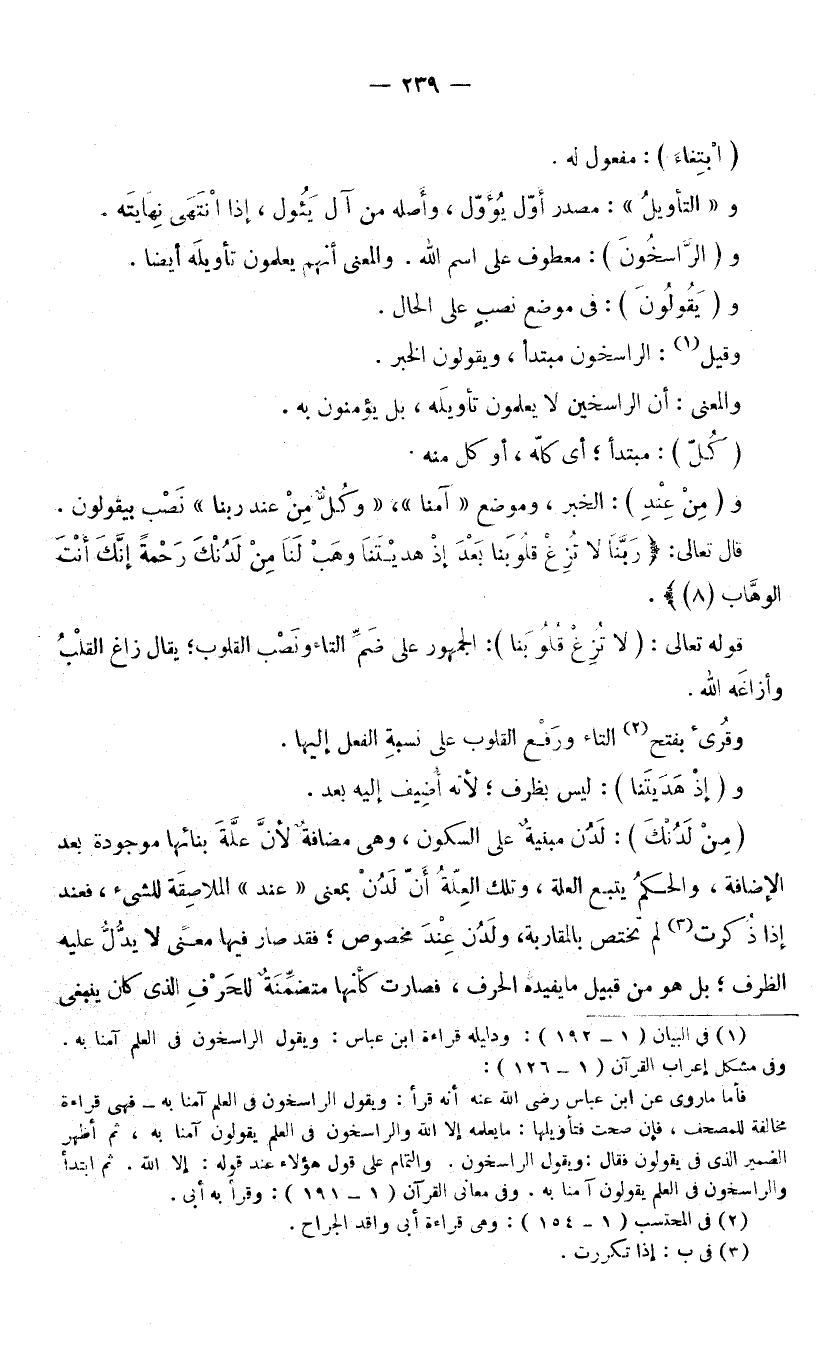 — ٢٣٩ —
( ابْتِغاءَ ) : مفعول له .
و « التأويلُ » : مصدر أَوّل يُؤَوّل ، وأَصله من آل يَئُول ، إذا انْتَهَى نِهايتَه .
و ( الرَّاسخُونَ ) : معطوف على اسم الله . والمعنى أنهم يعلمون تأويلَه أيضا .
و ( يَقُولُونَ ) : فى موضع نصبٍ على الحال .
وقيل(١) : الراسخون مبتدأ ، ويقولون الخبر .
والمعنى : أن الراسخين لا يعلمون تأويلَه ، بل يؤمنون به .
( كُلّ ) : مبتدأ ؛ أى كلّه ، أو كل منه .
و ( مِنْ عِنْدِ ) : الخبر ، وموضع « آمنا »، « وكُلٌّ مِنْ عند ربنا » نَصْب بيقولون .
قال تعالى: ﴿ رَبَّنَا لا تُزِغْ قلوبَنا بَعْدَ إذْ هديْتَنَا وهَبْ لَنَا مِنْ لَدُنْكَ رَحْمةً إنَّكَ أَنْتَ
الوهَّاب (٨) ﴾ .
قوله تعالى : ( لا تُزِغْ قُلُوبَنا ): الجمهور على ضَمِّ التاء ونَصْب القلوب؛ يقال زاغ القلْبُ
وأزاغَه الله .
وقُرىء بفتح(٢) التاء ورَفْع القلوب على نسبةِ الفعل إليها .
و ( إذْ هَدَيتَنا ) : ليس بظرف ؛ لأنه أُضِيف إليه بعد .
( مِنْ لَدُنْكَ ) : لَدُن مبنيةٌ على السكون ، وهى مضافةٌ لأنَّ علَّةَ بنائها موجودة بعد
الإضافة ، والحكمُ يتبع العلة ، وتلك العِلّةُ أَنّ لَدُنْ بمعنى « عند » الملاصِقَة للشىء ، فعند
إذا ذُكرت(٣) لم تختص بالمقاربة، ولَدُن عِنْدَ مخصوص ؛ فقد صار فيها معنًى لا يدُّلُّ عليه
الظرف ؛ بل هو من قبيل مايفيده الحرف ، فصارت كأنها متضمِّنَةٌ للحَرْفِ الذى كان ينبغى
(١) فى البيان ( ١ – ١٩٢ ) : ودليله قراءة ابن عباس : ويقول الراسخون فى العلم آمنا به .
وفى مشكل إعراب القرآن ( ١ – ١٢٦ ) :
فأما ماروى عن ابن عباس رضى الله عنه أنه قرأ : ويقول الراسخون فى العلم آمنا به – فهى قراءة
مخالفة للمصحف ، فإن صحت فتأويلها : مايعلمه إلا الله والراسخون فى العلم يقولون آمنا به ، ثم أظهر
الضمير الذى فى يقولون فقال : ويقول الراسخون . والتمام على قول هؤلاء عند قوله : إلا الله . ثم ابتدأ
والراسخون فى العلم يقولون آمنا به . وفى معانى القرآن ( ١ – ١٩١ ) : وقرأ به أبى .
(٢) فى المحتسب ( ١ – ١٥٤ ) : وهى قراءة أبى واقد الجراح .
(٣) فى ب : إذا تكررت .